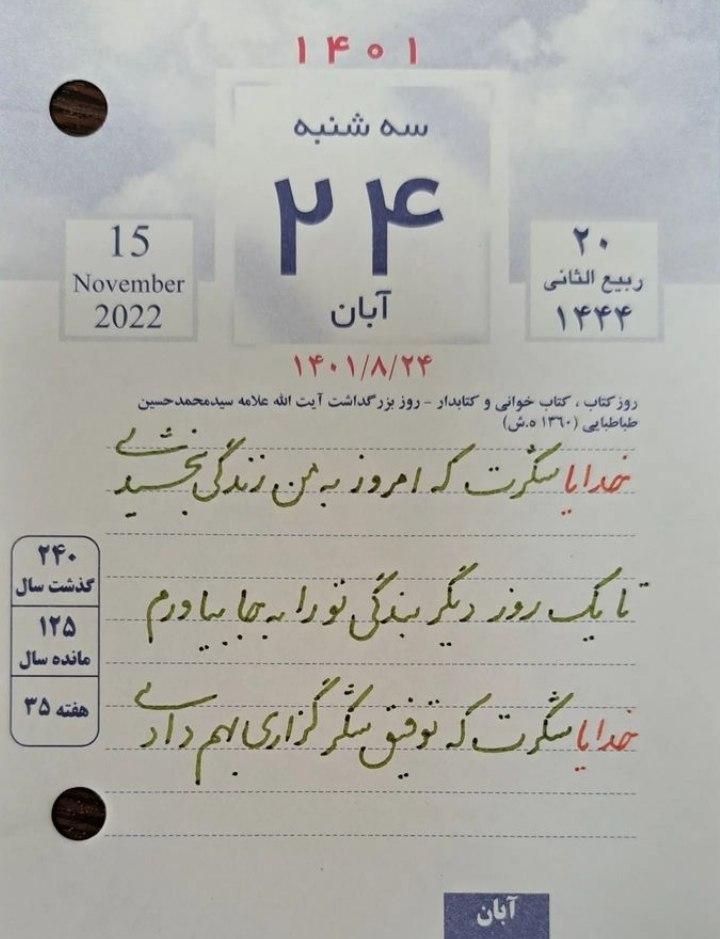 ۱۴۰۱
سه شنبه
۲۴
آبان
15
November
2022
۲۰
ربیع الثانی
۱۴۴۴
۱۴۰۱/۸/۲۴
روز کتاب ، کتاب خوانی و کتابدار - روز بزرگداشت آیت الله علامه سیدمحمدحسین
طباطبایی (۱۳۶۰ ه.ش)
خدایا شکرت که امروز به من زندگی بخشیدی
تا یک روز دیگر بندگی تو را به جا بیاورم
خدایا شکرت که توفیق شکرگزاری بهم دادی
۲۴۰
گذشت سال
۱۲۵
مانده سال
هفته ۳۵
آبان